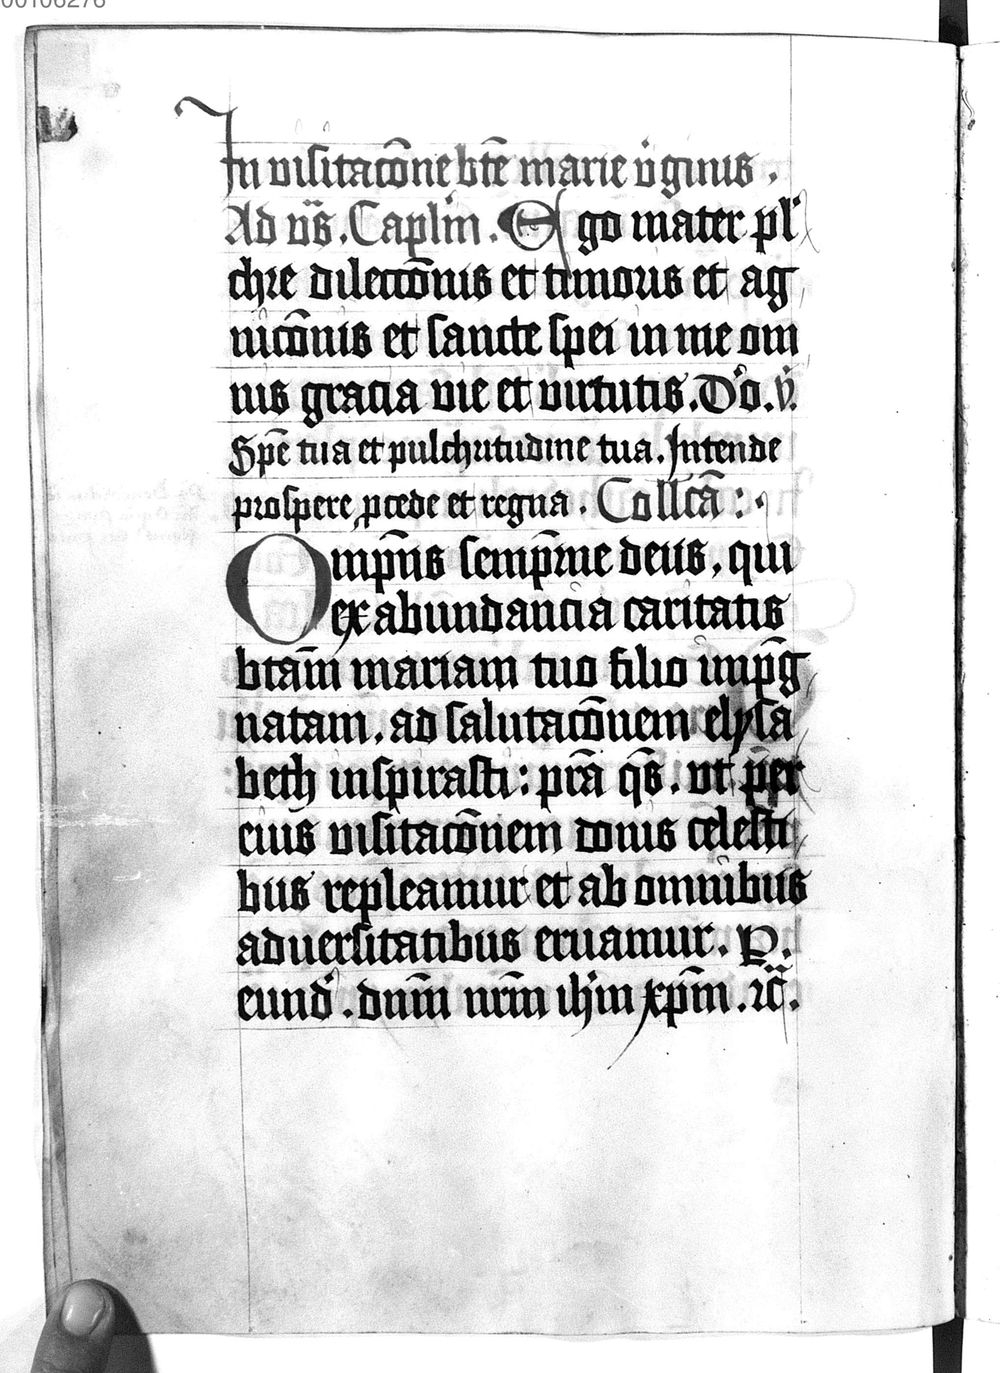 00106276
In visitacōne btē marie v̇ginis .
Ad vs̄ . Caplm̄ . Ego mater pl
chre dileccōnis et timoris et ag
nicōnis et sancte spei in me om
nis gracia vie et virtutis . Do . v̇.
Spē tua et pulchritudine tua . Intende
prospere ꝓcede et regna . Collcā :
Omp̄ns semp̄rne deus , qui
ex abundancia caritatis
btām mariam tuo filio imp̄g
natam , ad salutacōnem elysa
beth inspirasti : prā qs̄ . vt per
eius visitacōnem donis celesti
bus repleamur et ab omnibus
aduersitatibus eruamur . P.
eund̄ . dnm̄ nrm̄ ihm̄ xpm̄ . ꝛc̄ .